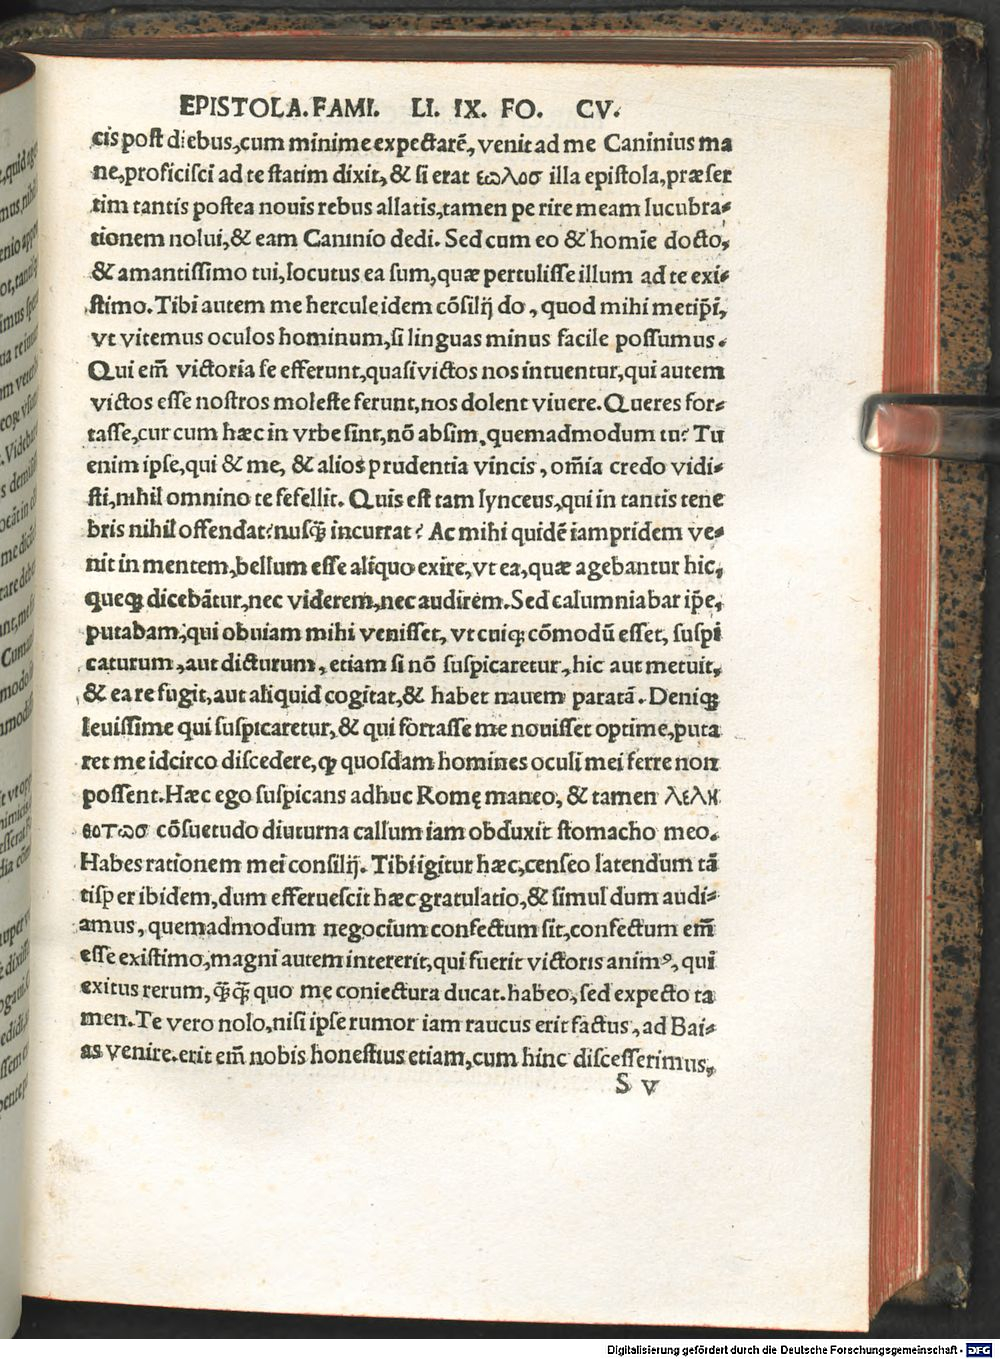 EPISTOLA.FAMI. LI. IX. FO. CV.
cis post diebus,cum minime expectarē, venit ad me Caninius ma
ne,proficisci ad te statim dixit,& si erat εωλοσ illa epistola,præser
tim tantis postea nouis rebus allatis,tamen perire meam lucubra-
tionem nolui,& eam Caninio dedi. Sed cum eo & homīe docto,
& amantissimo tui,locutus ea sum,quæ pertulisse illum ad te exi-
stimo. Tibi autem me hercule idem cōsilij do , quod mihi metip̄i,
vt vitemus oculos hominum,si linguas minus facile possumus.
Qui em̄ victoria se efferunt,quasi victos nos intuentur,qui autem
victos esse nostros moleste ferunt,nos dolent viuere. Queres for-
tasse,cur cum hæc in vrbe sint,nō absim,quemadmodum tu? Tu
enim ipse,qui & me, & alios prudentia vincis, om̄ia credo vidi-
sti,nihil omnino te fefellit. Quis est tam lynceus,qui in tantis tene
bris nihil offendat?nusq̄ incurrat? Ac mihi quidē iampridem ve-
nit in mentem,bellum esse aliquo exire,vt ea,quæ agebantur hic,
queq; dicebātur,nec viderem,nec audirem. Sed calumniabar ip̄e,
putabam,qui obuiam mihi venisset, vt cuiq; cōmodū esset, suspi
caturum,aut dicturum, etiam si nō suspicaretur,hic aut metuit,
& ea re fugit,aut aliquid cogitat,& habet nauem paratā. Deniq;
leuissime qui suspicaretur,& qui fortasse me nouisset optime,puta
ret me idcirco discedere,ꝙ quosdam homines oculi mei ferre non
possent. Hæc ego suspicans adhuc Romę maneo, & tamen λελη
θοτωσ cōsuetudo diuturna callum iam obduxit stomacho meo.
Habes rationem mei consilij. Tibi igitur hæc,censeo latendum tā
tisper ibidem,dum efferuescit hæc gratulatio,& simul dum audi-
amus, quemadmodum negocium confectum sit,confectum em̄
esse existimo,magni autem intererit,qui fuerit victoris animꝰ, qui
exitus rerum, q̄q̄ quo me coniectura ducat.habeo,sed expecto ta
men. Te vero nolo,nisi ipse rumor iam raucus erit factus, ad Bai-
as venire.erit em̄ nobis honestius etiam,cum hinc discesserimus,
S v
Digitalisierung gefördert durch die Deutsche Forschungsgemeinschaft - DFG